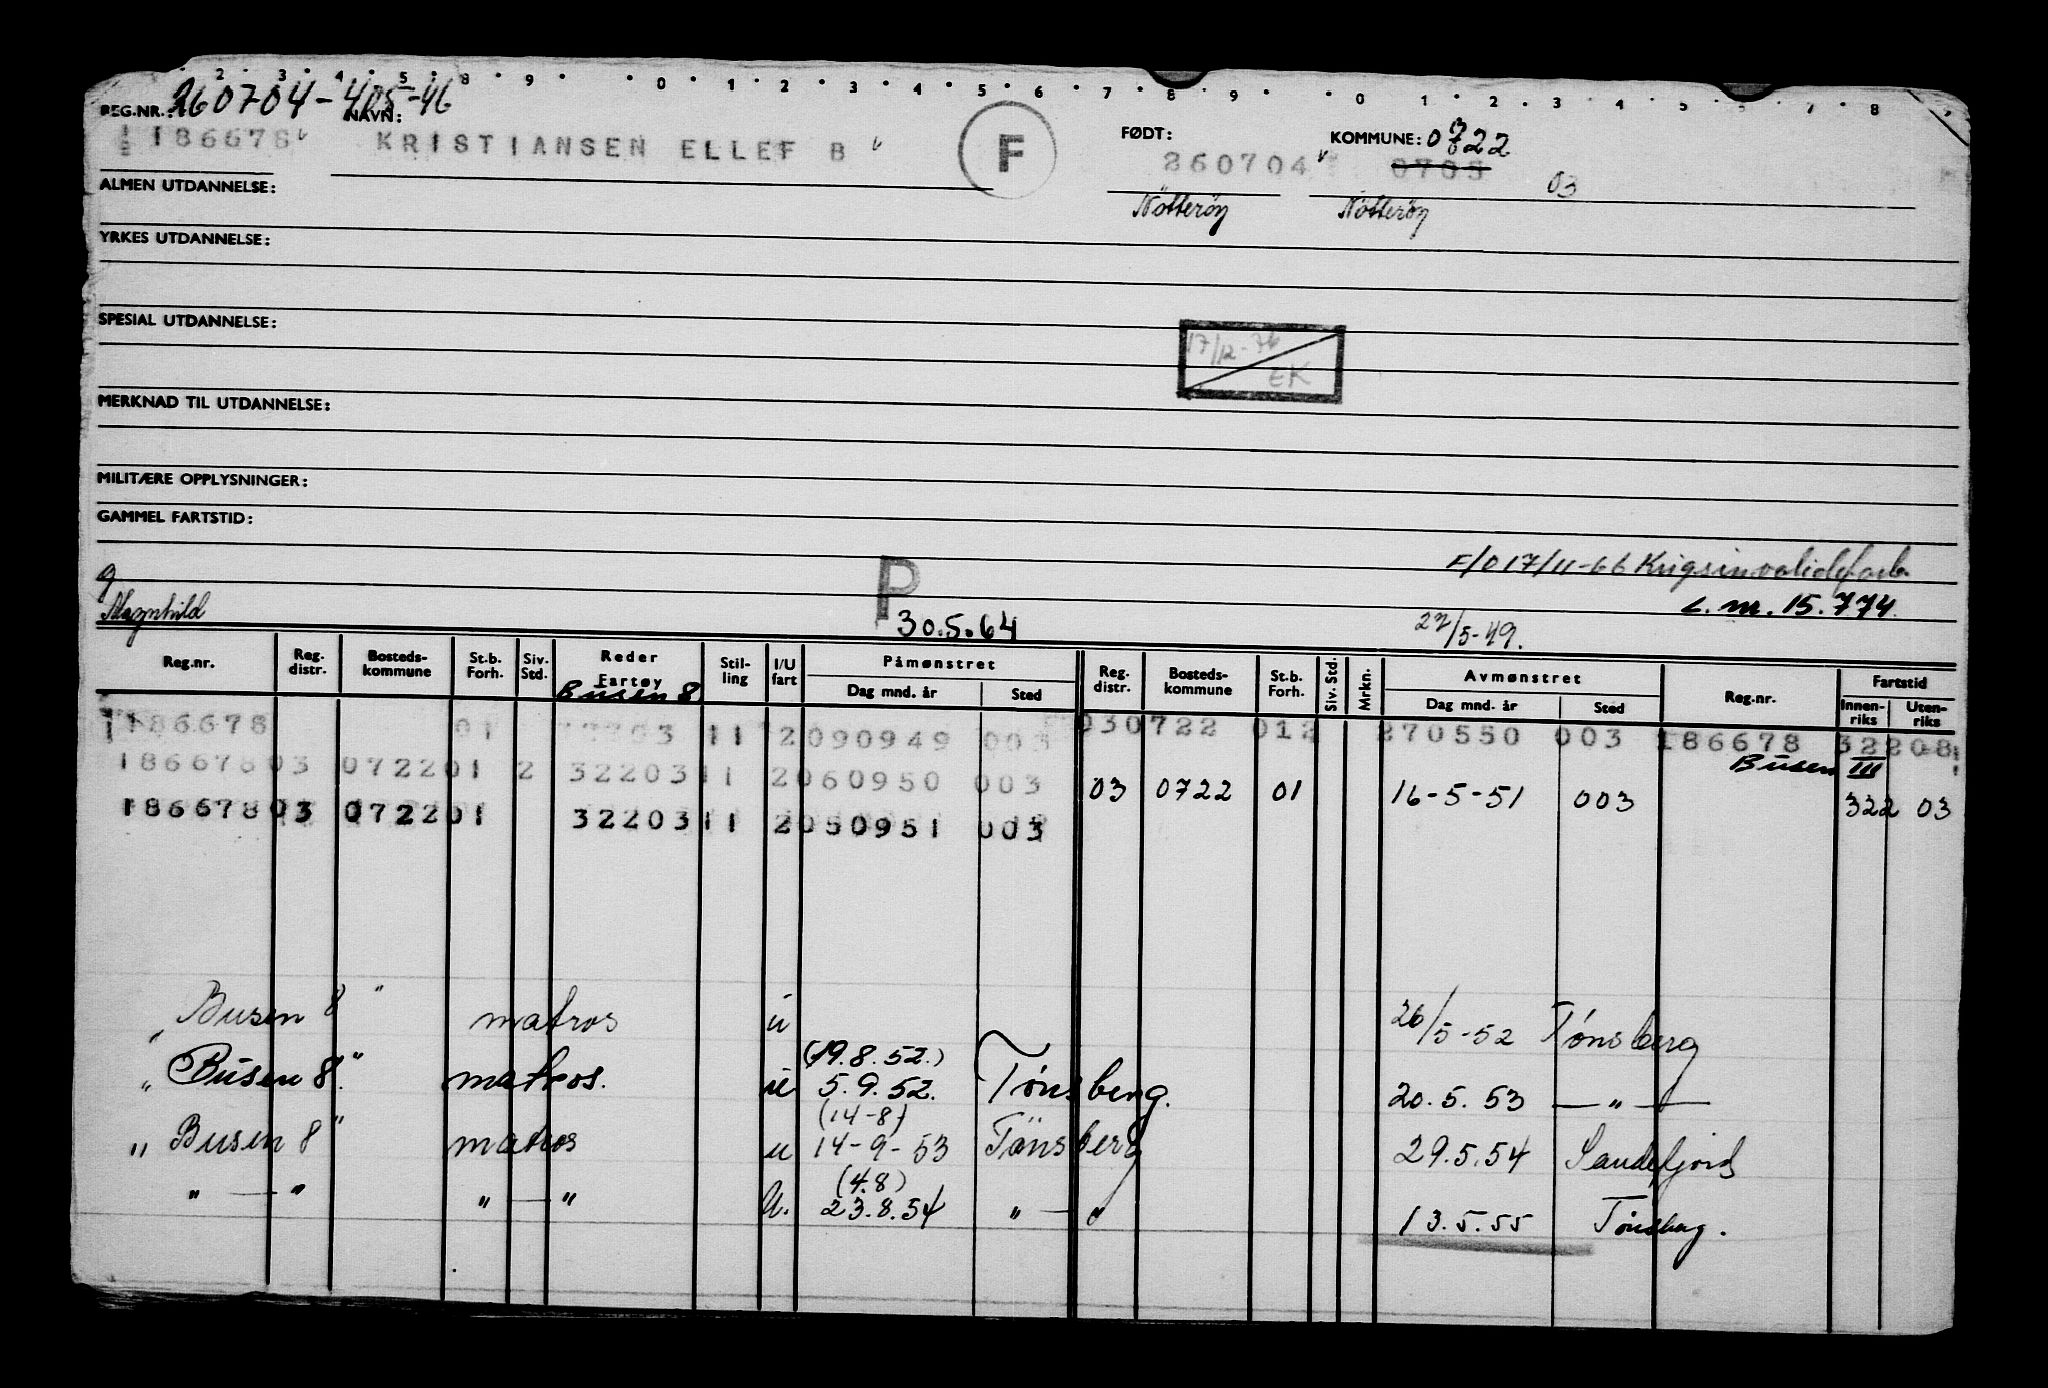 2 3 4 5 8 9 0 1 2 3 4 5 6 7 8 9 0 1 2 3 4 5 6 7 8
REG.NR.: 260704-405-46 NAVN: FØDT: KOMMUNE: 0722
186678 KRISTIANSEN ELLEF B F 260704 0705
ALMEN UTDANNELSE: Nøtterøy Nøtterøy 03
YRKES UTDANNELSE:
SPESIAL UTDANNELSE:
17/12-76
EK
MERKNAD TIL UTDANNELSE:
MILITÆRE OPPLYSNINGER:
GAMMEL FARTSTID:
F/O 17/11-66 Krigsinvalideforb.
g P L. nr. 15.774.
Magnhild 30.5.64 27/5-49.
Reg.nr. Reg. distr. Bosteds-kommune St.b. Forh. Siv. Std. Reder Fartøy Stil-ling I/U fart Påmønstret Dag mnd. år Sted Reg. distr. Bosteds-kommune St.b. Forh. Siv. Std. Mrkn. Avmønstret Dag mnd. år Sted Reg.nr. Fartstid Innen-riks Uten-riks
Busen 8
186678 01 203 11 2 090949 003 030722 012 270550 003 186678 32208
Busen III
186678 03 0722 01 2 32203 11 2 060950 003 03 0722 01 16-5-51 003 322 03
186678 03 0722 01 32203 11 2 050951 003
" Busen 8 " matros u 26/5-52 Tønsberg
(19.8.52.)
" Busen 8." matros. u 5.9.52. Tønsberg. 20.5.53 — " —
(14-8)
" Busen 8 " matros u 14-9-53 Tönsberg 29.5.54 Sandefjord
(4.8)
" — " " — " U. 23.8.54 " — " 13.5.55 Tønsberg.